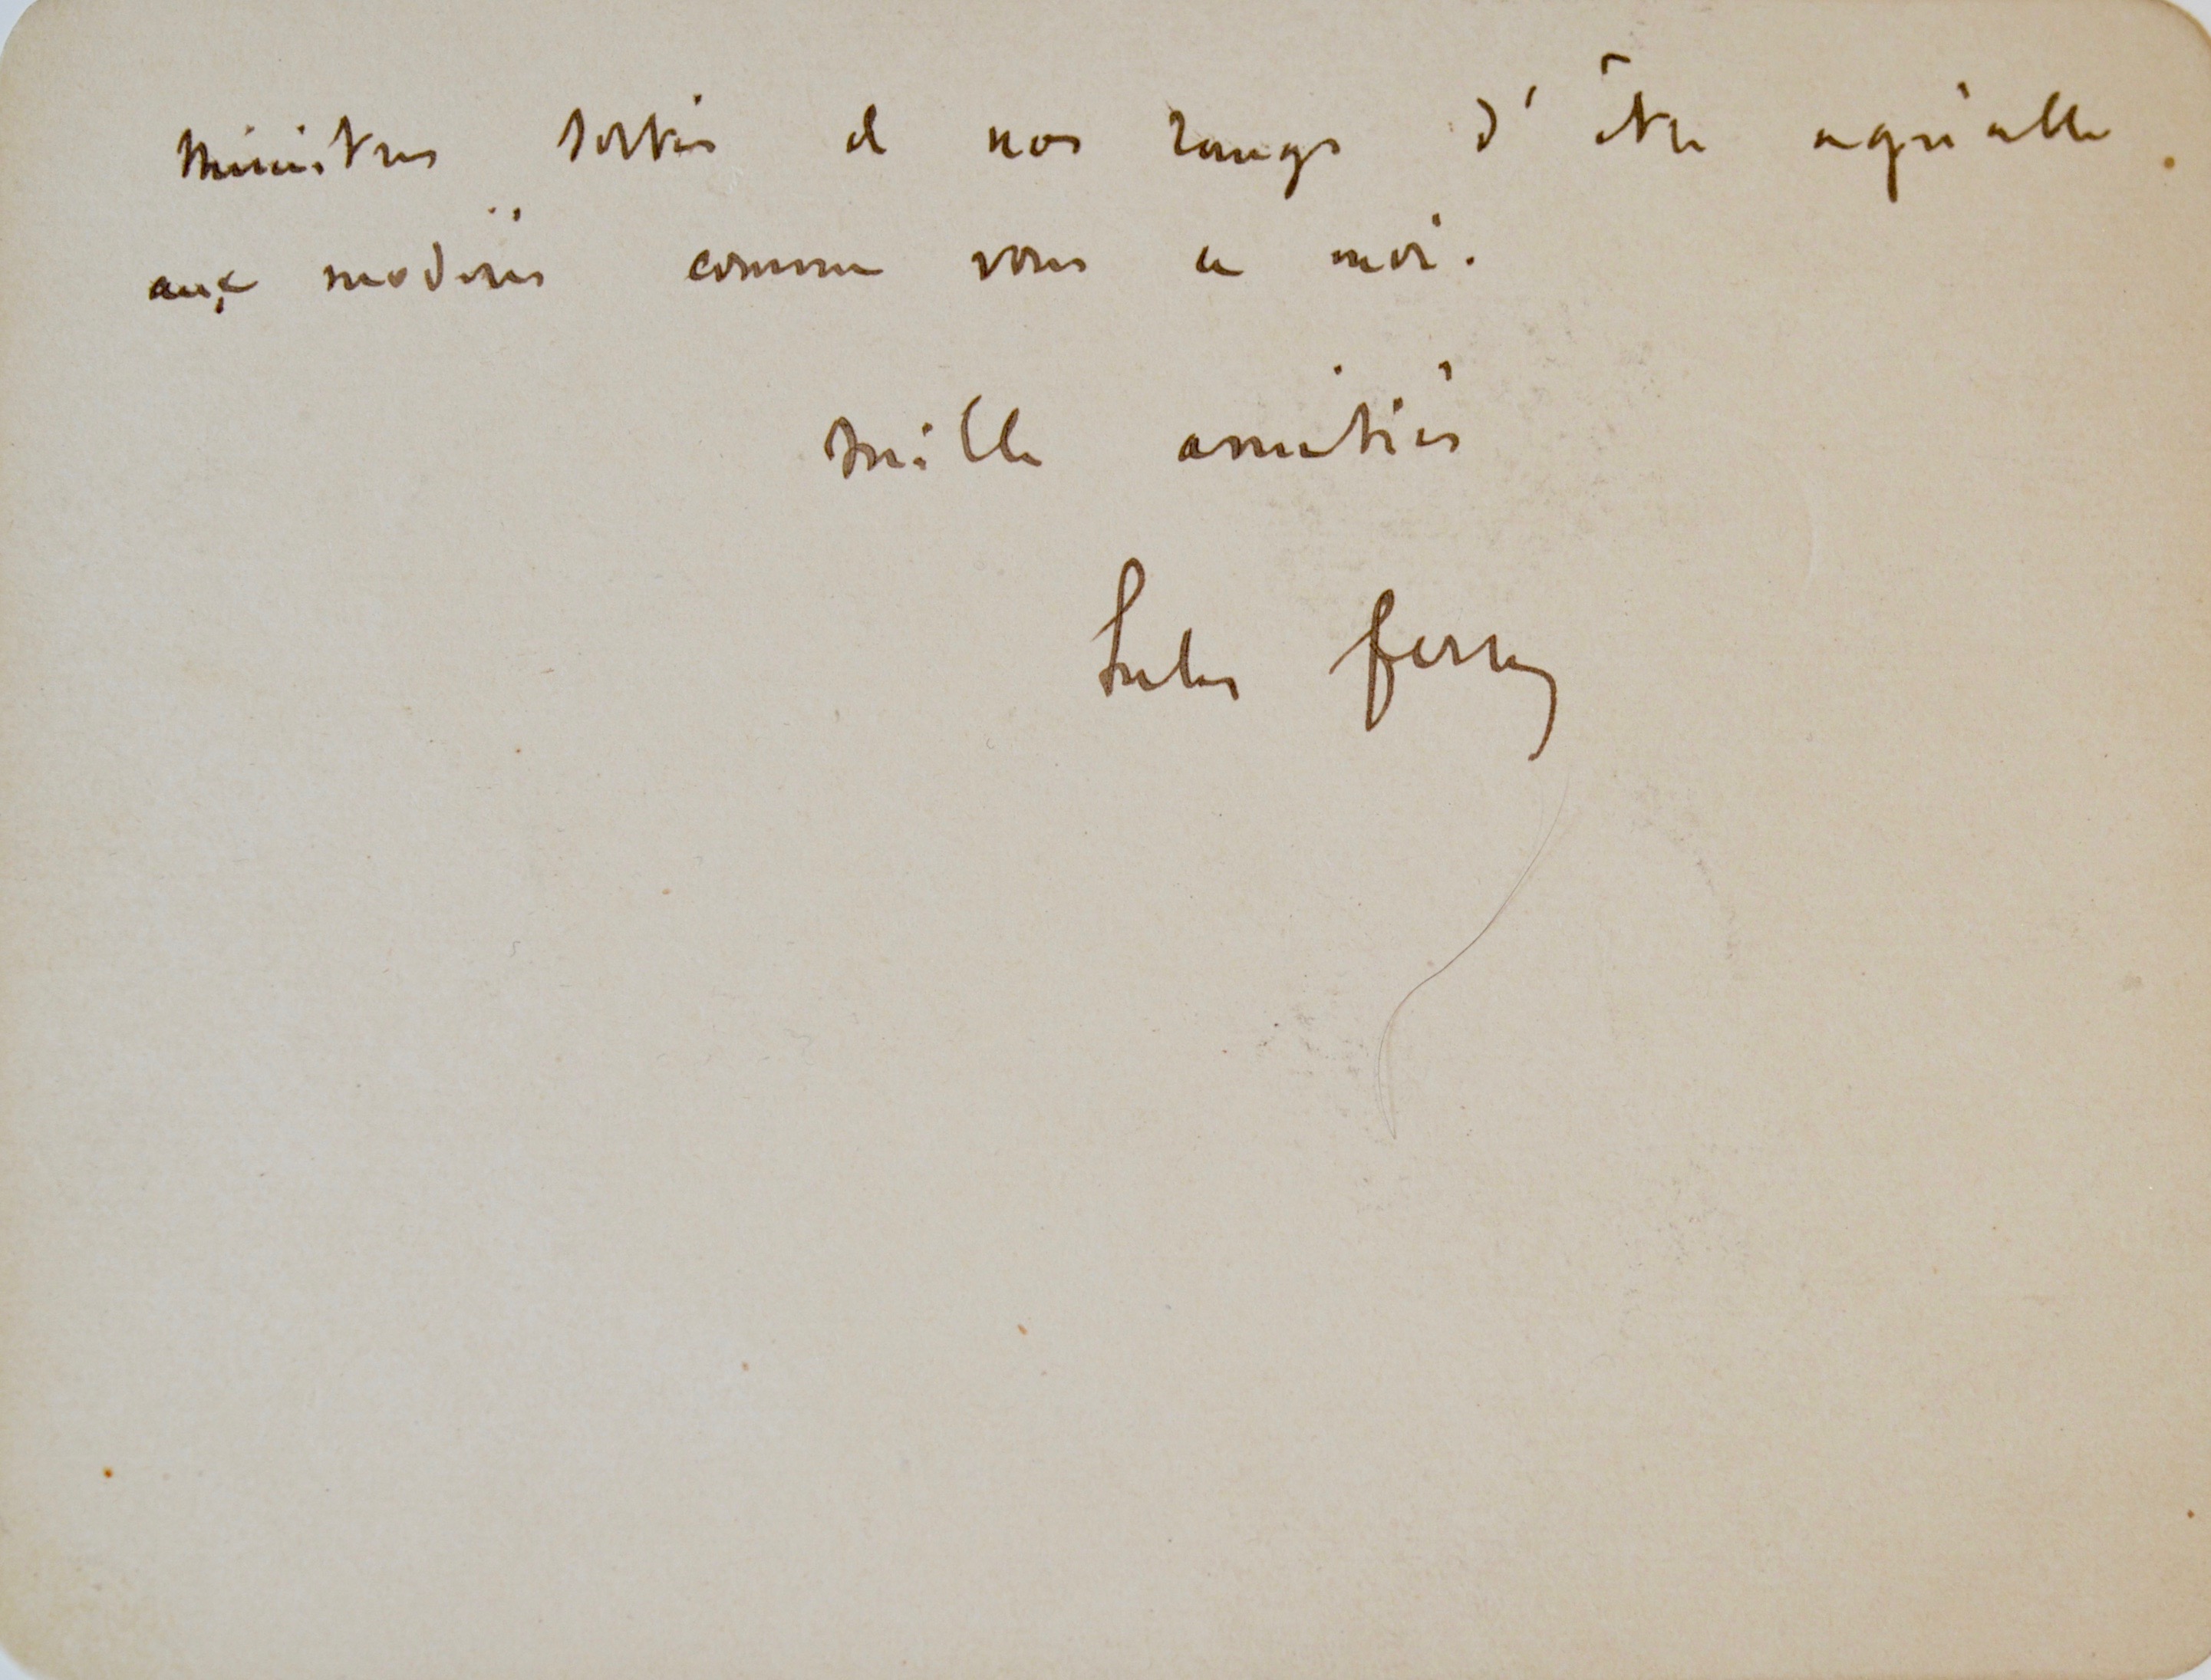 Ministres sortis de nos rangs d'être agréable
aux modérés comme vous et moi.
Mille amitiés
Jules Ferry